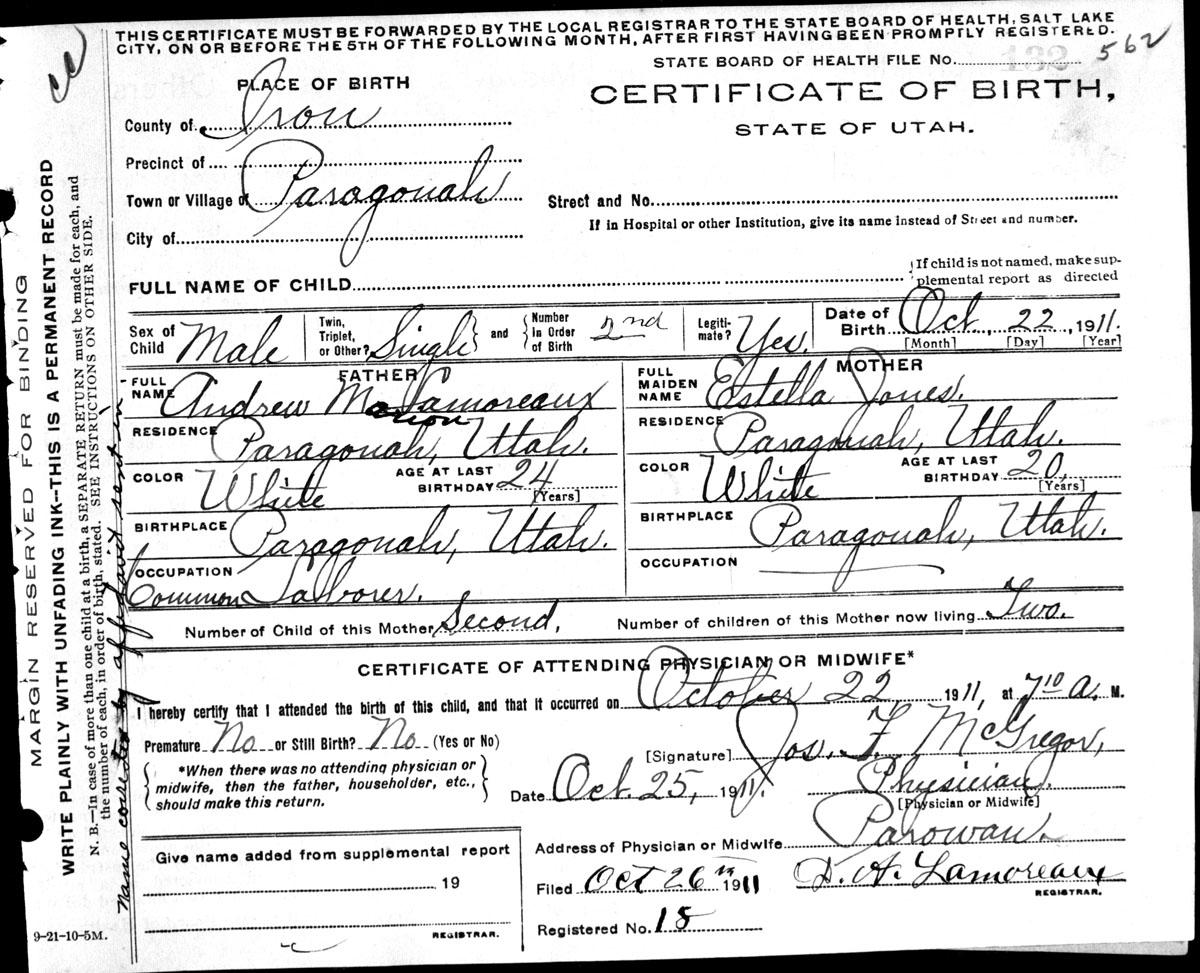 THIS CERTIFICATE MUST BE FORWARDED BY THE LOCAL REGISTRAR TO THE STATE BOARD OF HEALTH, SALT LAKE
CITY, ON OR BEFORE THE 5TH OF THE FOLLOWING MONTH, AFTER FIRST HAVING BEEN PROMPTLY REGISTERED.
STATE BOARD OF HEALTH FILE No. 132 562
PLACE OF BIRTH
CERTIFICATE OF BIRTH,
STATE OF UTAH.
County of Iron
Precinct of
Town or Village of Paragonah
Street and No.
If in Hospital or other Institution, give its name instead of Street and number.
City of
FULL NAME OF CHILD
If child is not named, make sup-
plemental report as directed
Sex of Child Male
Twin, Triplet, or Other? Single and Number in Order of Birth 2nd
Legiti-mate? Yes.
Date of Birth Oct. 22, 1911.
[Month] [Day] [Year]
FATHER
FULL NAME Andrew Marion Lamoreaux
RESIDENCE Paragonah, Utah.
COLOR White AGE AT LAST BIRTHDAY 24 [Years]
BIRTHPLACE Paragonah, Utah.
OCCUPATION Common Laborer.
MOTHER
FULL MAIDEN NAME Estella Jones.
RESIDENCE Paragonah, Utah.
COLOR White AGE AT LAST BIRTHDAY 20. [Years]
BIRTHPLACE Paragonah, Utah.
OCCUPATION
Number of Child of this Mother Second. Number of children of this Mother now living Two.
CERTIFICATE OF ATTENDING PHYSICIAN OR MIDWIFE*
I hereby certify that I attended the birth of this child, and that it occurred on October 22 1911, at 7 10 A. M.
Premature No or Still Birth? No (Yes or No)
[Signature] Jos. F. McGregor,
*When there was no attending physician or
midwife, then the father, householder, etc.,
should make this return.
Date Oct. 25, 1911.
Physician.
[Physician or Midwife]
Address of Physician or Midwife Parowan.
Give name added from supplemental report
19
REGISTRAR.
Filed Oct 26th 1911 D. A. Lamoreaux
REGISTRAR.
Registered No. 15
MARGIN RESERVED FOR BINDING
WRITE PLAINLY WITH UNFADING INK--THIS IS A PERMANENT RECORD
N. B.--In case of more than one child at a birth, a SEPARATE RETURN must be made for each, and
the number of each, in order of birth, stated. SEE INSTRUCTIONS ON OTHER SIDE.
Name corrected by affidavit sent in
9-21-10-5M.